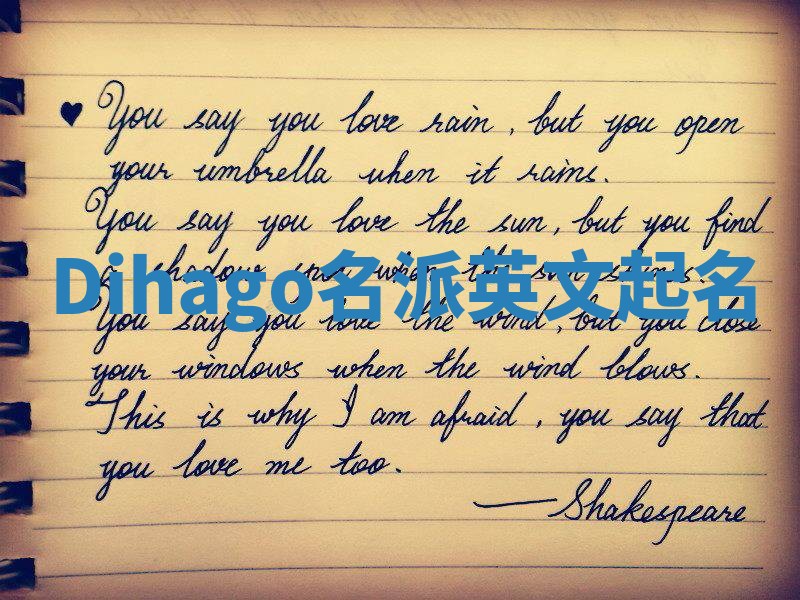 ♥ You say you love rain, but you open
your umbrella when it rains.
You say you love the sun, but you find
a shadow spot when the sun shines.
Dihago名派英文起名
You say you love the wind, but you close
your windows when the wind blows.
This is why I am afraid, you say that
you love me too.
—Shakespeare